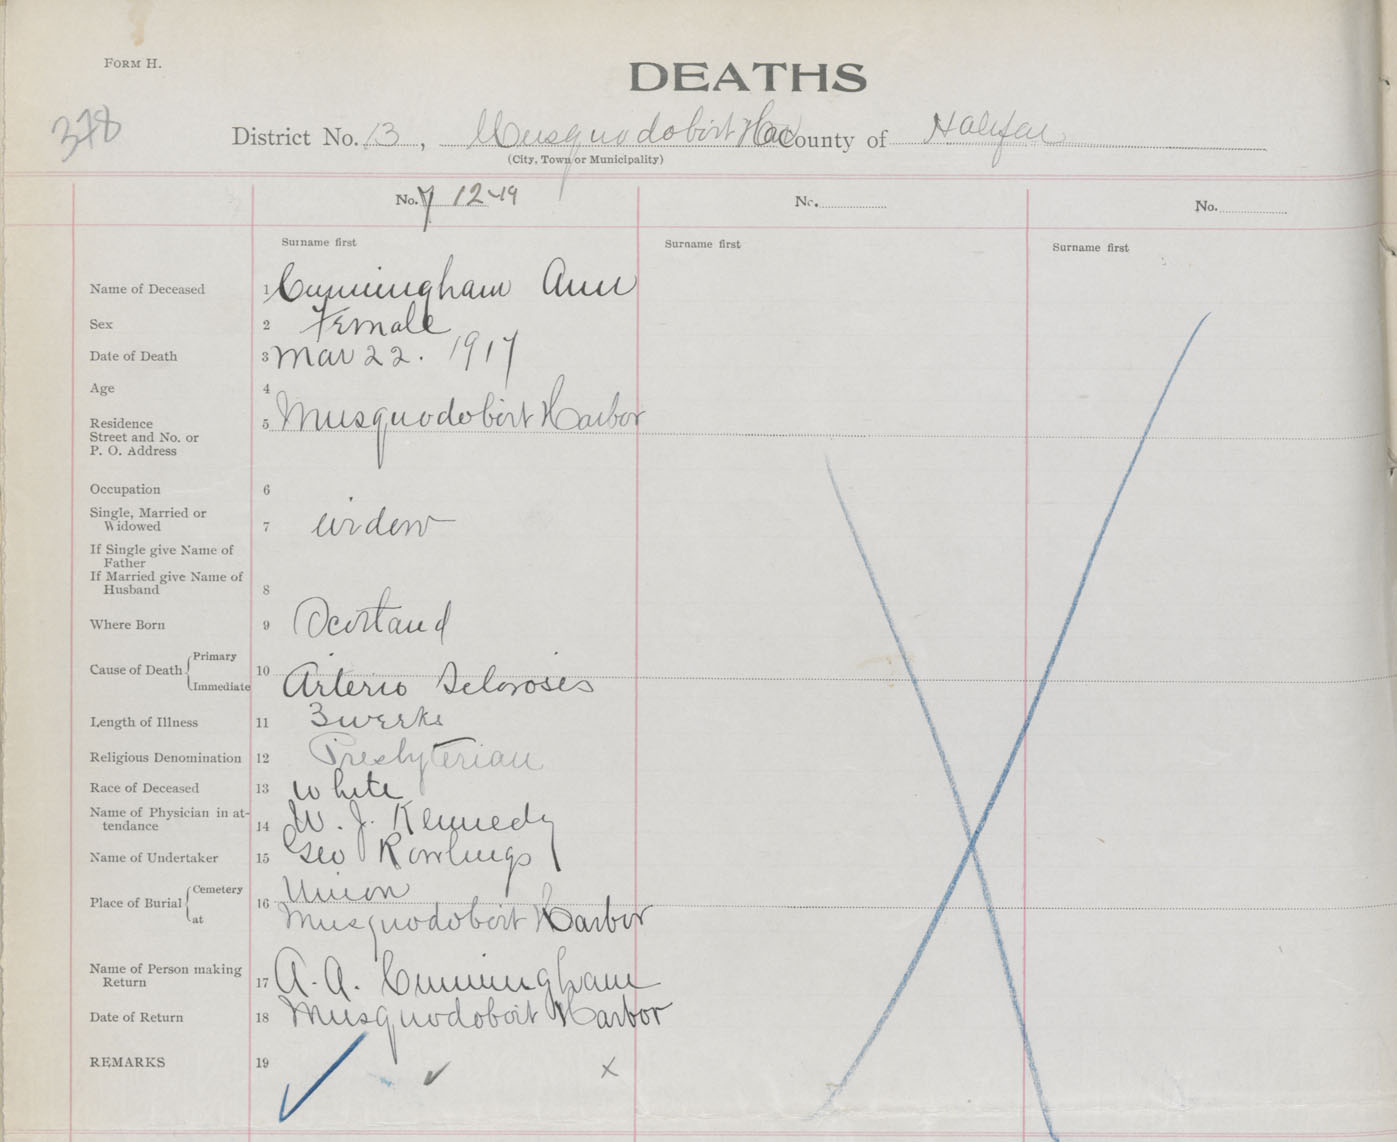 FORM H.
DEATHS
378
District No. 13, Musquodoboit Har County of Halifax
(City, Town or Municipality)
No. 7 12-19 No. No.
Surname first Surname first Surname first
Name of Deceased 1 Cunningham Ann
Sex 2 Female
Date of Death 3 Mar 22. 1917
Age 4
Residence
Street and No. or 5 Musquodoboit Harbor
P. O. Address
Occupation 6
Single, Married or
Widowed 7 widow
If Single give Name of
Father
If Married give Name of
Husband 8
Where Born 9 Scotland
Cause of Death Primary 10
Immediate Arterio Scloroses
Length of Illness 11 3 weeks
Religious Denomination 12 Presbyterian
Race of Deceased 13 white
Name of Physician in at-
tendance 14 W. J. Kennedy
Name of Undertaker 15 Geo Rowlings
Place of Burial Cemetery 16 Union
at Musquodoboit Harbor
Name of Person making
Return 17 A. A. Cunningham
Date of Return 18 Musquodoboit Harbor
REMARKS 19